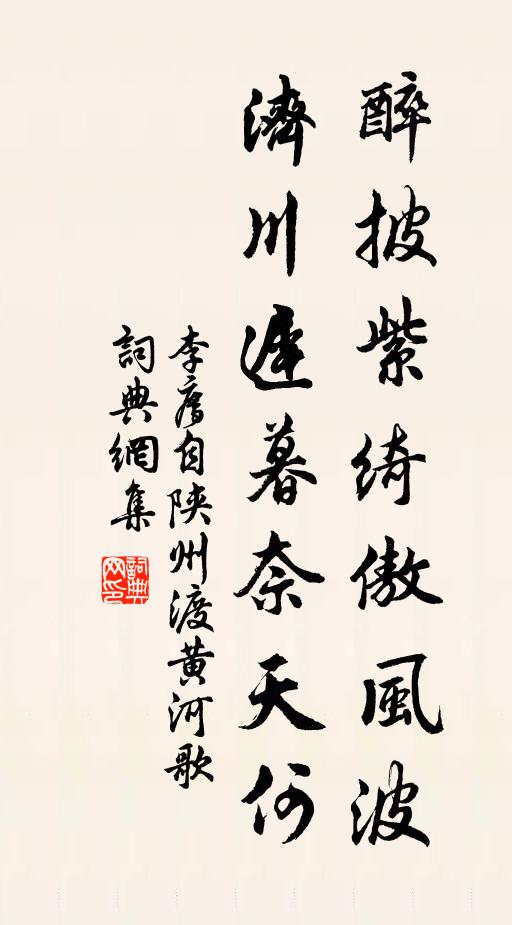 醉披紫綺傲風波
濟川遲暮奈天何
李廌自陝州渡黃河歌
詞典網集
詞典网印